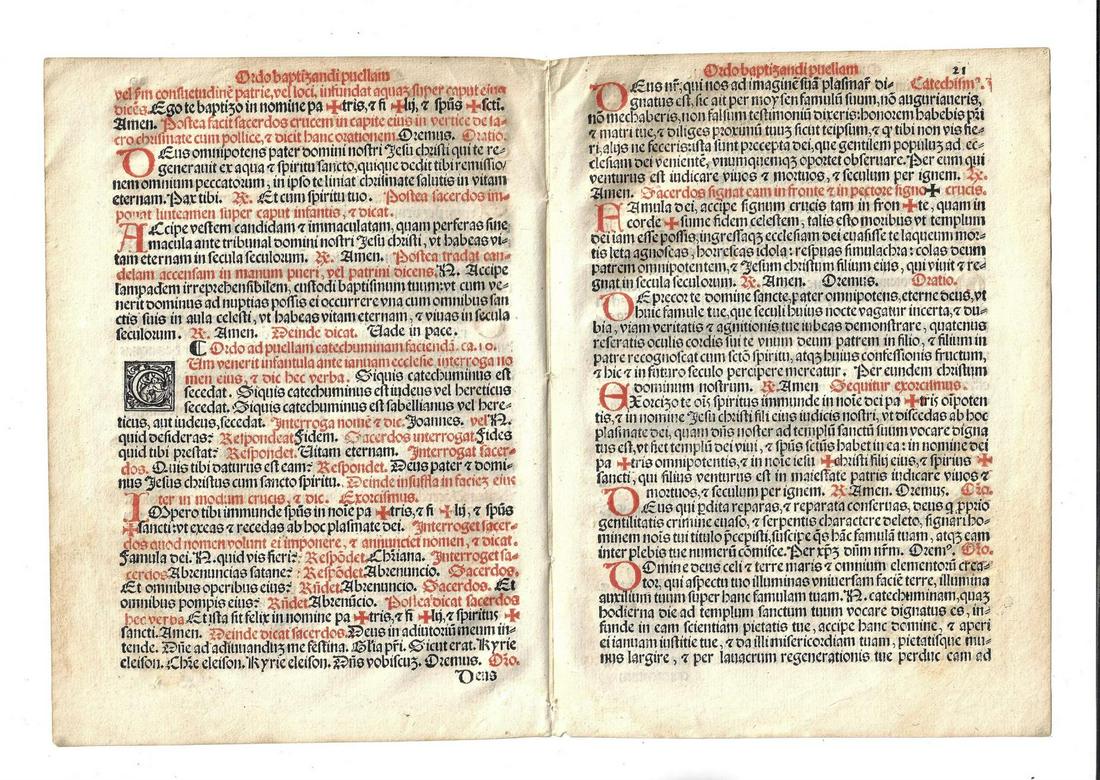 Ordo baptizandi puellam
vel ẜm consuetudinē patrie, vel loci, infundat aquaȝ super caput eius
dicēs. Ego te baptizo in nomine pa ✠ tris, ⁊ fi ✠ lij, ⁊ spūs ✠ scti.
Amen. Postea facit sacerdos crucem in capite eius in vertice de sa-
cro chrismate cum pollice, ⁊ dicit hanc orationem. Oremus. Oratio.
DEus omnipotens pater domini nostri Jesu christi qui te re-
generauit ex aqua ⁊ spiritu sancto, quique dedit tibi remissio-
nem omnium peccatorum, in ipso te liniat chrismate salutis in vitam
eternam. Pax tibi. ℟. Et cum spiritu tuo. Postea sacerdos im-
ponat linteamen super caput infantis, ⁊ dicat.
ACcipe vestem candidam ⁊ immaculatam, quam perferas sine
macula ante tribunal domini nostri Jesu christi, vt habeas vi-
tam eternam in secula seculorum. ℟. Amen. Postea tradat can-
delam accensam in manum pueri, vel patrini dicens. N. Accipe
lampadem irreprehensibilem, custodi baptismum tuum: vt cum ve-
nerit dominus ad nuptias possis ei occurrere vna cum omnibus san
ctis suis in aula celesti, vt habeas vitam eternam, ⁊ viuas in secula
seculorum. ℟. Amen. Deinde dicat. Uade in pace.
¶ Ordo ad puellam catechuminam faciendā. ca. 10.
CUm venerit infantula ante ianuam ecclesie interroga no
men eius, ⁊ dic hec verba. Siquis catechuminus est
secedat. Siquis catechuminus est iudeus vel hereticus
secedat. Siquis catechuminus est sabellianus vel here-
ticus, aut iudeus, secedat. Interroga nomē ⁊ dic. Joannes. vel N.
quid desideras? Respondeat Fidem. Sacerdos interrogat Fides
quid tibi prestat? Respondet. Uitam eternam. Interrogat sacer-
dos. Quis tibi daturus est eam? Respondet. Deus pater ⁊ domi-
nus Jesus christus cum sancto spiritu. Deinde insufla in facieȝ eius
ter in modum crucis, ⁊ dic. Exorcismus.
IMpero tibi immunde spūs in noīe pa ✠ tris, ⁊ fi ✠ lij, ⁊ spūs
✠ sancti: vt exeas ⁊ recedas ab hoc plasmate dei. Interroget sacer-
dos quod nomen volunt ei imponere, ⁊ annunciet nomen, ⁊ dicat.
Famula dei. N. quid vis fieri? Respōdet. Chr̄iana. Interroget sa-
cerdos Abrenuncias satane? Respōdet Abrenuncio. Sacerdos.
Et omnibus operibus eius? Rn̄det Abrenuncio. Sacerdos. Et
omnibus pompis eius? Rn̄det Abrenūcio. Postea dicat sacerdos
hec verba. Et ista sit felix in nomine pa ✠ tris, ⁊ fi ✠ lij, ⁊ spiritus ✠
sancti. Amen. Deinde dicat sacerdos. Deus in adiutoriū meum in-
tende. Dn̄e ad adiuuanduȝ me festina. Gl̄ia pr̄i. Sicut erat. Kyrie
eleison. Chr̄e eleison. Kyrie eleison. Dn̄s vobiscuȝ. Oremus. Or̄o.
Deus
Ordo baptizandi puellam 21
DEus nr̄, qui nos ad imaginē tuā plasmar̄ di- Catechism⁹.
gnatus est, sic ait per moysen famulū suum, nō auguriaueris,
nō mechaberis, non falsum testimoniū dixeris: honorem habebis pr̄i
⁊ matri tue, ⁊ diliges proximū tuuȝ sicut teipsum, ⁊ qd̄ tibi non vis fie-
ri, alijs ne feceris: ista sunt precepta dei, que gentilem populuȝ ad ec-
clesiam dei venientē, vnumquemqȝ oportet obseruare. Per eum qui
venturus est iudicare viuos ⁊ mortuos, ⁊ seculum per ignem. ℟.
Amen. Sacerdos signat eam in fronte ⁊ in pectore signo ✠ crucis.
FAmula dei, accipe signum crucis tam in fron ✠ te, quam in
corde ✠ sume fidem celestem, talis esto moribus vt templum
dei iam esse possis, ingressaqȝ ecclesiam dei euasisse te laqueum mor-
tis leta agnoscas, horrescas idola: respuas simulachra: colas deum
patrem omnipotentem, ⁊ Jesum christum filium eius, qui viuit ⁊ re-
gnat in secula seculorum. ℟. Amen. Oremus. Oratio.
DEprecor te domine sancte, pater omnipotens, eterne deus, vt
huic famule tue, que seculi huius nocte vagatur incerta, ⁊ du-
bia, viam veritatis ⁊ agnitionis tue iubeas demonstrare, quatenus
reseratis oculis cordis sui te vnum deum patrem in filio, ⁊ filium in
patre recognoscat cum sctō spiritu, atqȝ huius confessionis fructum,
⁊ hic ⁊ in futuro seculo percipere mereatur. Per eundem christum
dominum nostrum. ℟. Amen Sequitur exorcismus.
EXorcizo te oīs spiritus immunde in noīe dei pa ✠ tris oīpoten
tis, ⁊ in nomine Jesu christi filij eius iudicis nostri, vt discedas ab hoc
plasmate dei, quam dn̄s noster ad templū sanctū suum vocare digna
tus est, vt fiet templū dei viui, ⁊ spūs sctūs habet in ea: in nomine dei
pa ✠ tris omnipotentis, ⁊ in noīe iesu ✠ christi filij eius, ⁊ spiritus ✠
sancti, qui filius venturus est in maiestate patris iudicare viuos ⁊
mortuos, ⁊ seculum per ignem. ℟ Amen. Oremus. Or̄o.
DEus qui pdita reparas, ⁊ reparata conseruas, deus q pprio
gentilitatis crimine euaso, ⁊ serpentis charactere deleto, signari ho-
minem nois tui titulo pcepisti, suscipe qs̄ hāc famulā tuam, atqȝ eam
inter plebis tue numerū cōmisce. Per xp̄ȝ dn̄m nr̄m. Orem⁹. Or̄o.
DOmine deus celi ⁊ terre maris ⁊ omnium elementorū crea-
tor, qui aspectu tuo illuminas vniuersam faciē terre, illumina
auxilium tuum super hanc famulam tuam. N. catechuminam, quaȝ
hodierna die ad templum sanctum tuum vocare dignatus es, in-
funde in eam scientiam pietatis tue, accipe hanc domine, ⁊ aperi
ei ianuam iustitie tue, ⁊ da illi misericordiam tuam, pietatisque mu-
nus largire, ⁊ per lauacrum regenerationis tue perduc eam ad